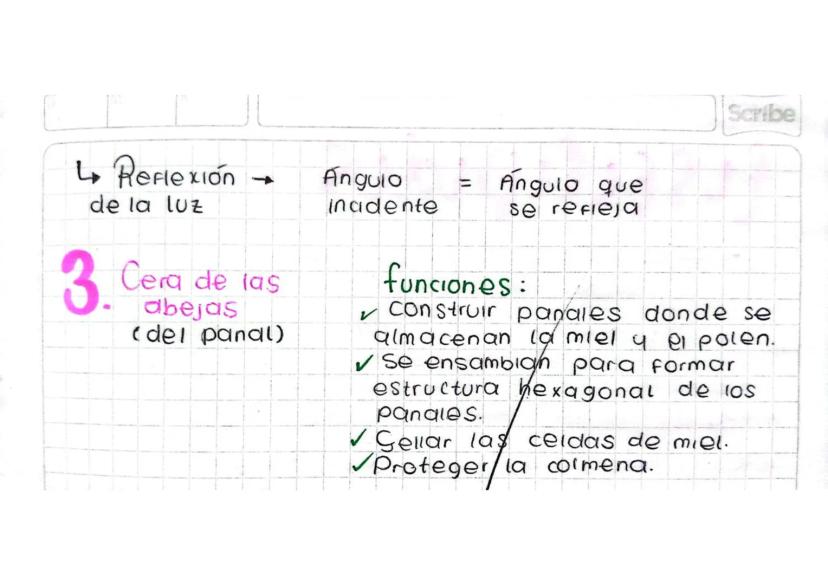 Scribe
↳ Reflexión → Ángulo = Ángulo que
de la luz incidente se refleja
3. Cera de las abejas (del panal)
funciones:
✓ construir panales donde se
almacenan la miel y el polen.
✓ Se ensamblan para formar
estructura hexagonal de los
panales.
✓ Sellar las celdas de miel.
✓ Proteger la colmena.